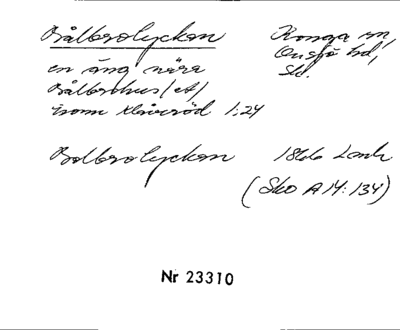 Bålbrolyckan Konga sn,
Onsjö hd,
en äng nära Sk.
Bålbrohus (et)
inom Klåveröd 1:24
Bolbrolyckan 1866 Lanh
(Sko A 14:134)
Nr 23310